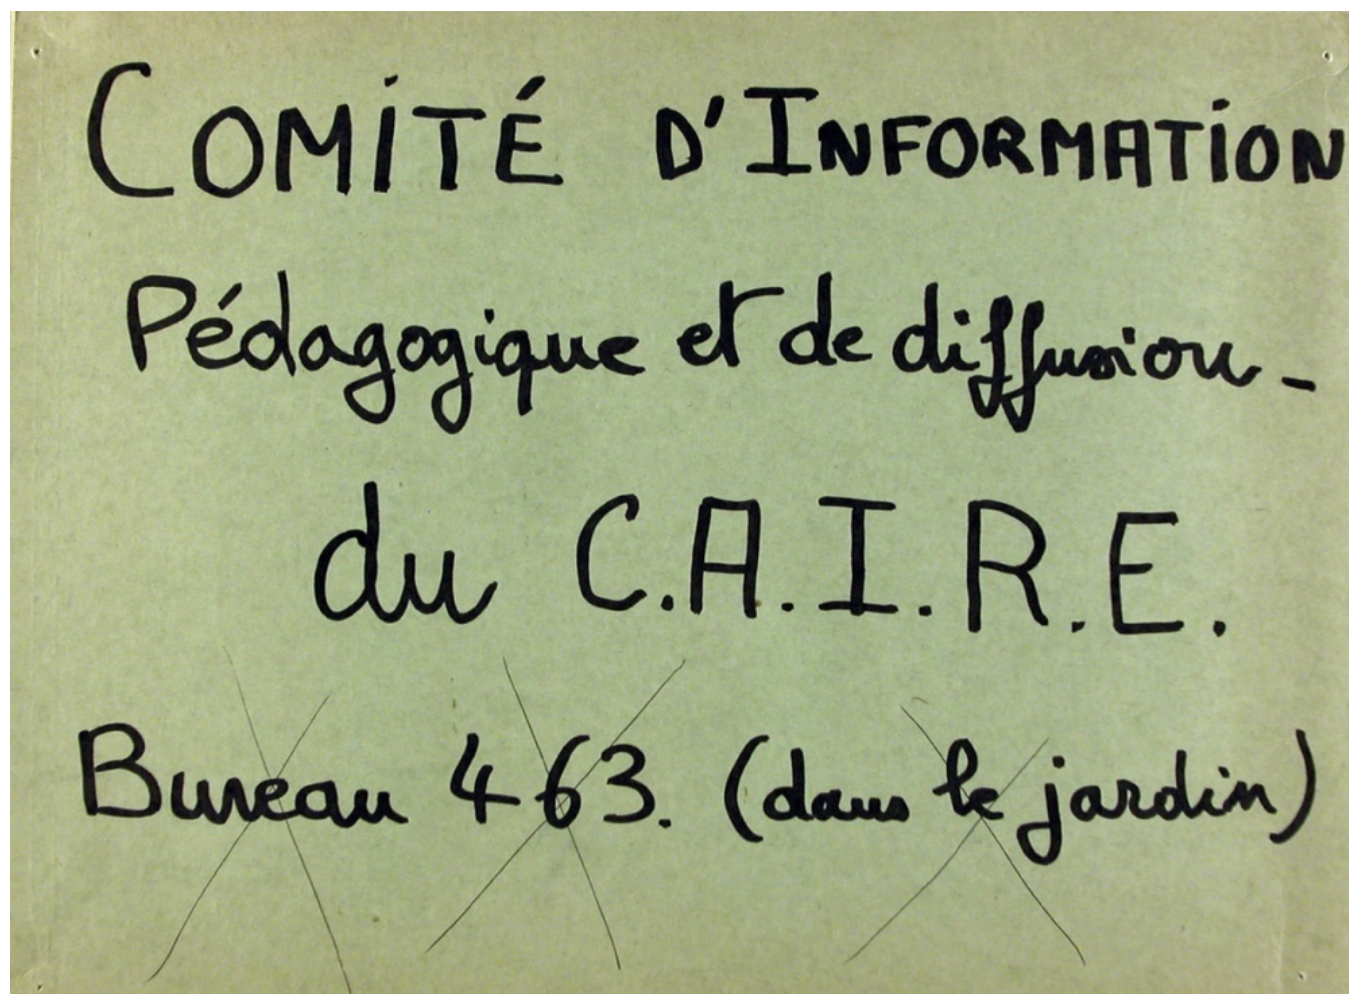 COMiTÉ D'INFORMATiON
Pédagogique et de diffusion -
du C.A.I.R.E.
Bureau 463. (dans le jardin)